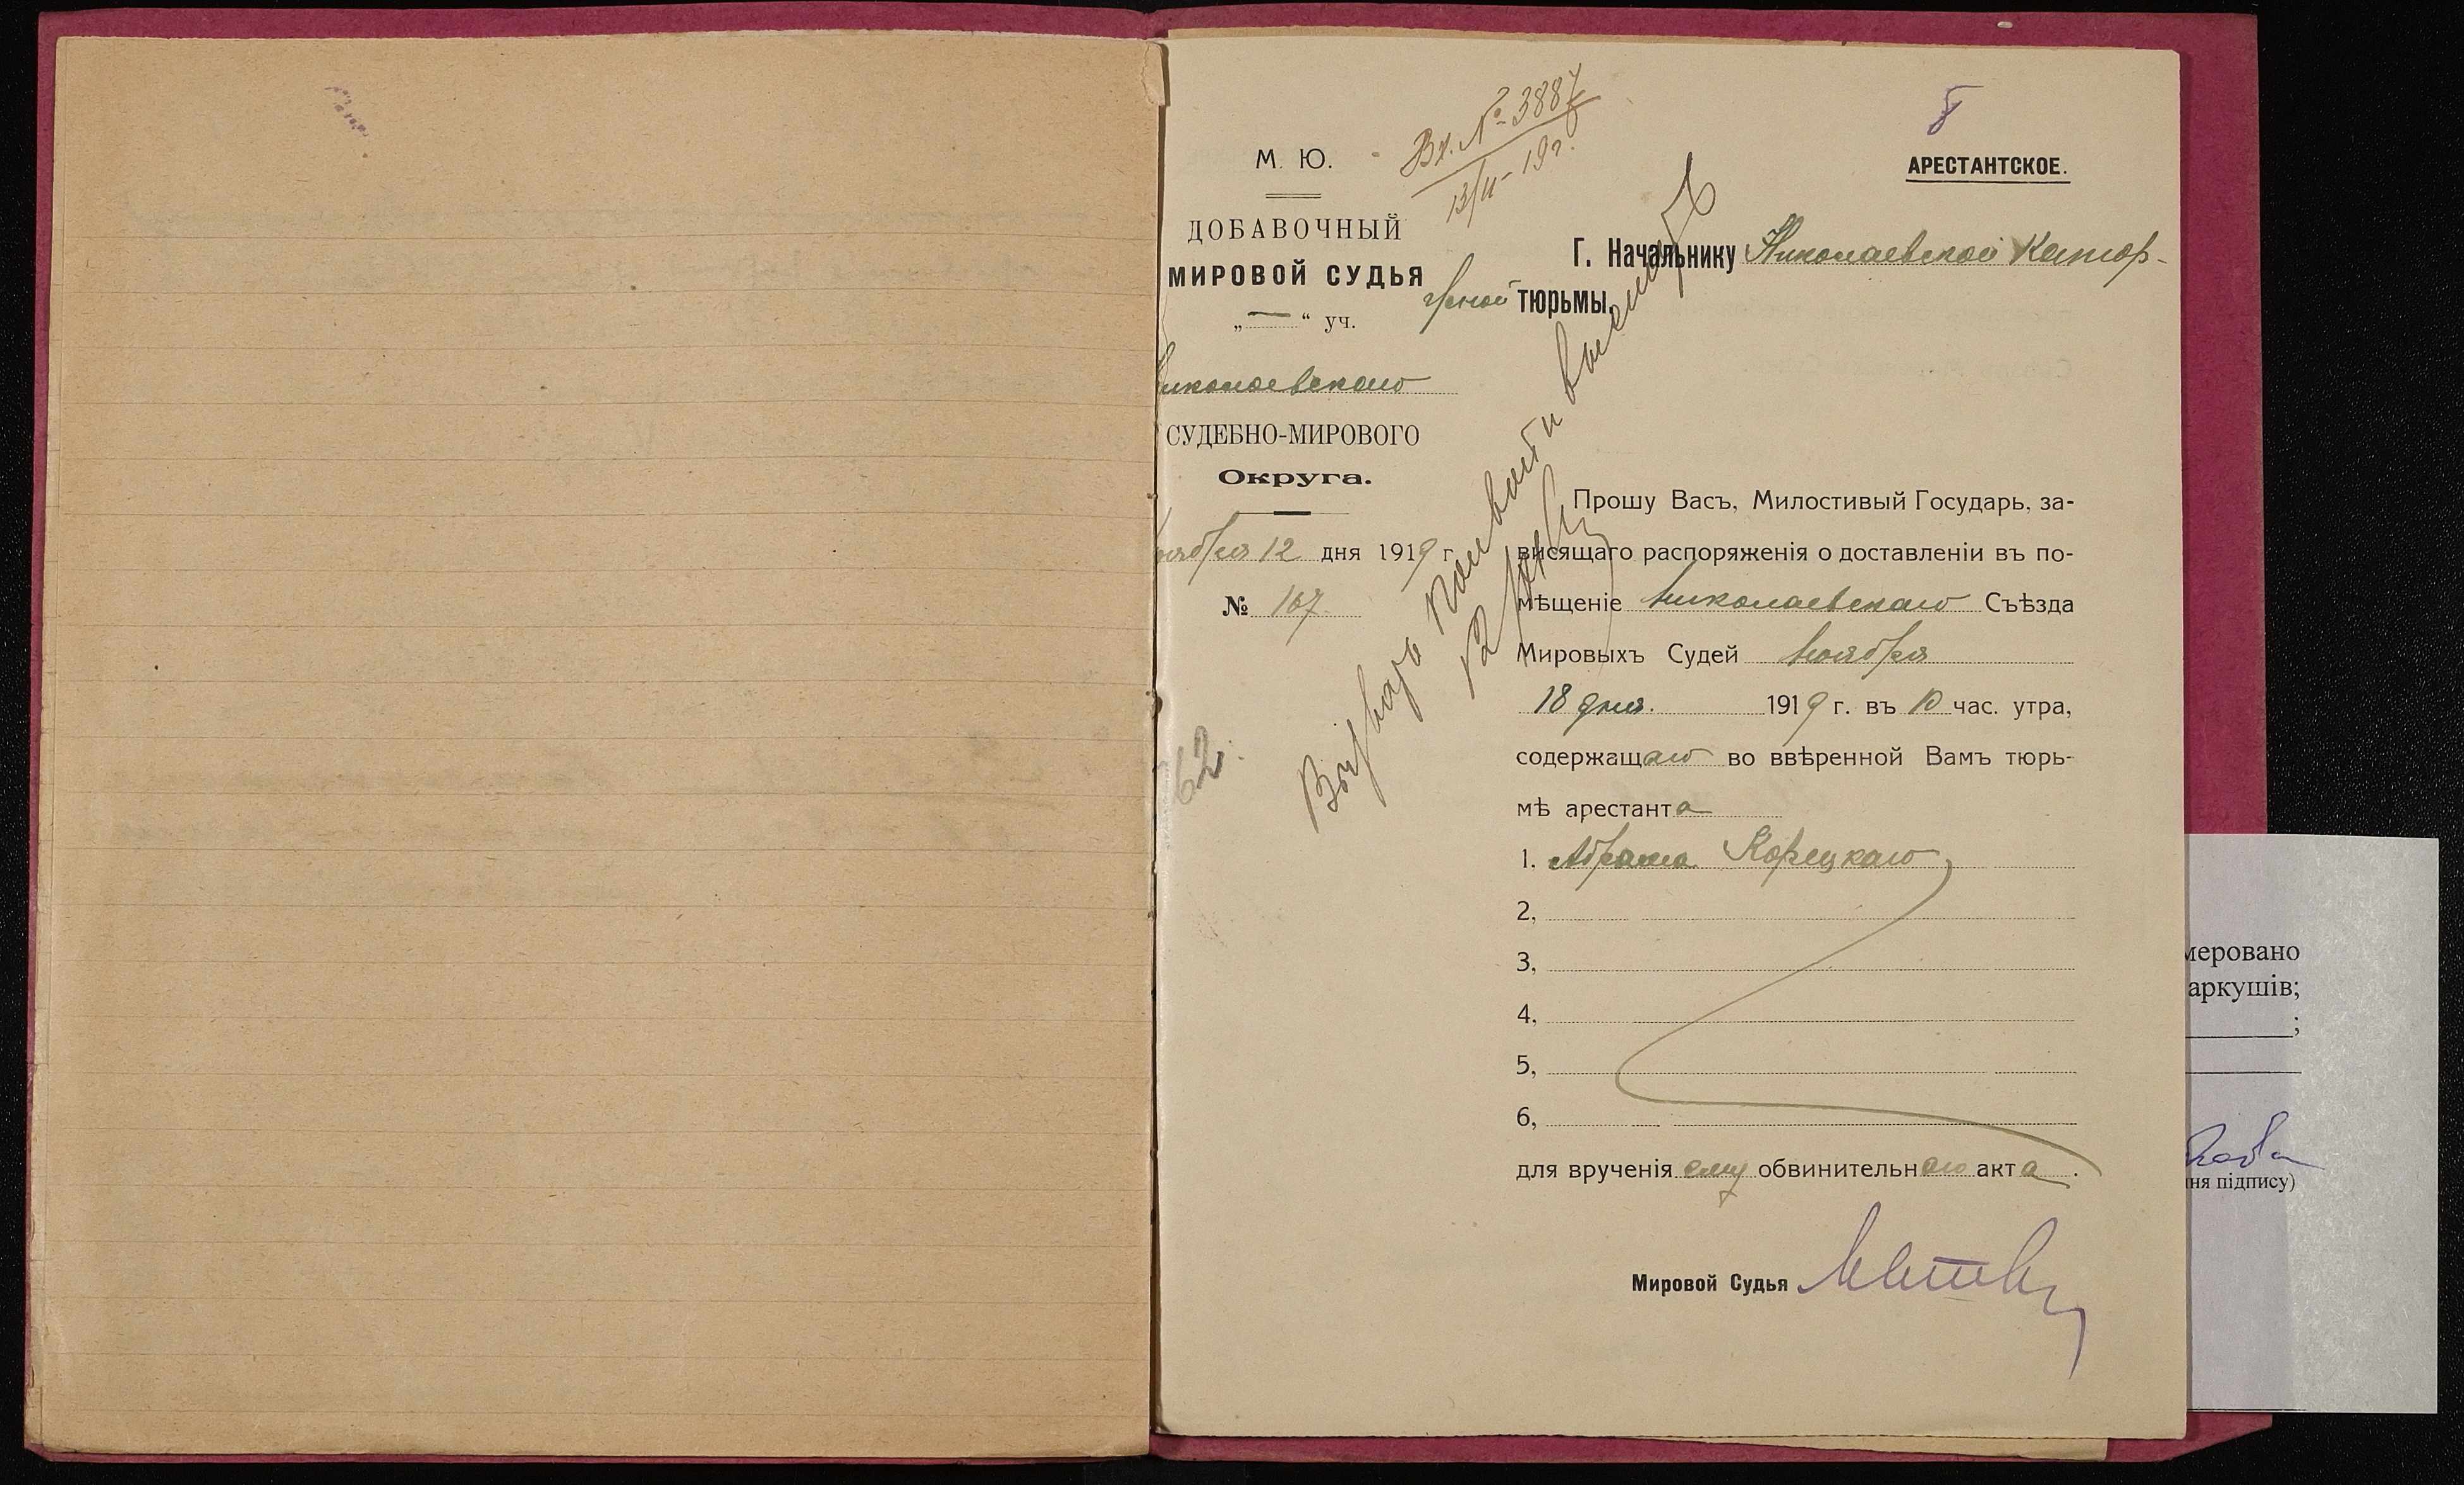 Вх. № 3887
13/II - 19 г.
М. Ю.
ДОБАВОЧНЫЙ
МИРОВОЙ СУДЬЯ
„—“ уч.
Николаевскаго
СУДЕБНО-МИРОВОГО
Округа.
ноября 12 дня 1919 г.
№ 167
62.
5
АРЕСТАНТСКОЕ.
Г. Начальнику Николаевской Катор-
жной тюрьмы.
Прошу Васъ, Милостивый Государь, за-
висящаго распоряженія о доставленіи въ по-
мѣщеніе Николаевскаго Съѣзда
Мировыхъ Судей ноября
18 дня. 1919 г. въ 10 час. утра,
содержащаго во ввѣренной Вамъ тюрь-
мѣ арестанта
1. Абрама Корецкаго
2,
3,
4,
5,
6,
для врученія ему обвинительнаго акта.
Мировой Судья
меровано
аркушів;
;
ня підпису)